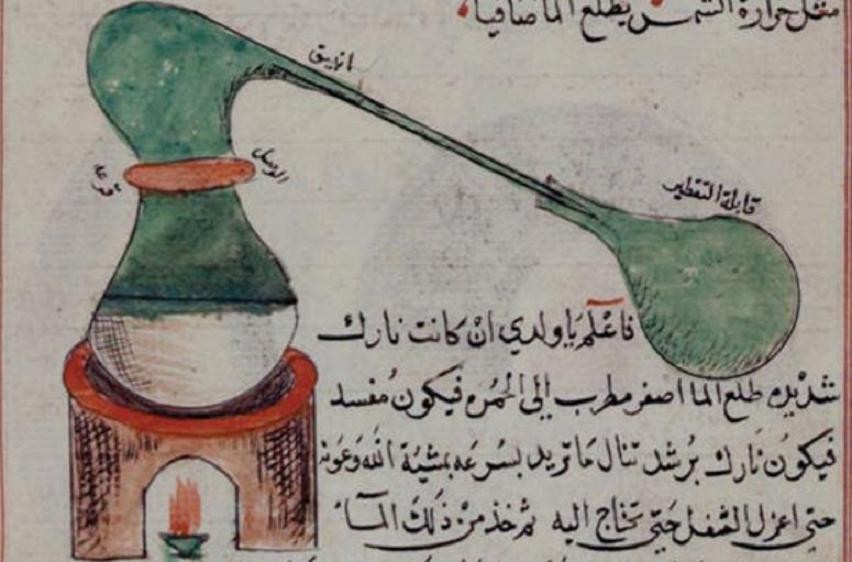 مثل حرارة الشمس يطلع الما صافيا
انبيق
الوصل
قرعة
قابلة التقطير
فاعْلم يَا ولدي انْ كانت نارك
شديده طلع الما اصفر مطرب الى الحُمره فيكونُ مفسد
فيكونُ نارك برُشد تنال مَا تريد بسرعَه بمشيّة الله وَعَونه
حتى اعزل الثفل حَتى تحتاج اليه ثم خذ منْ ذلك المآء